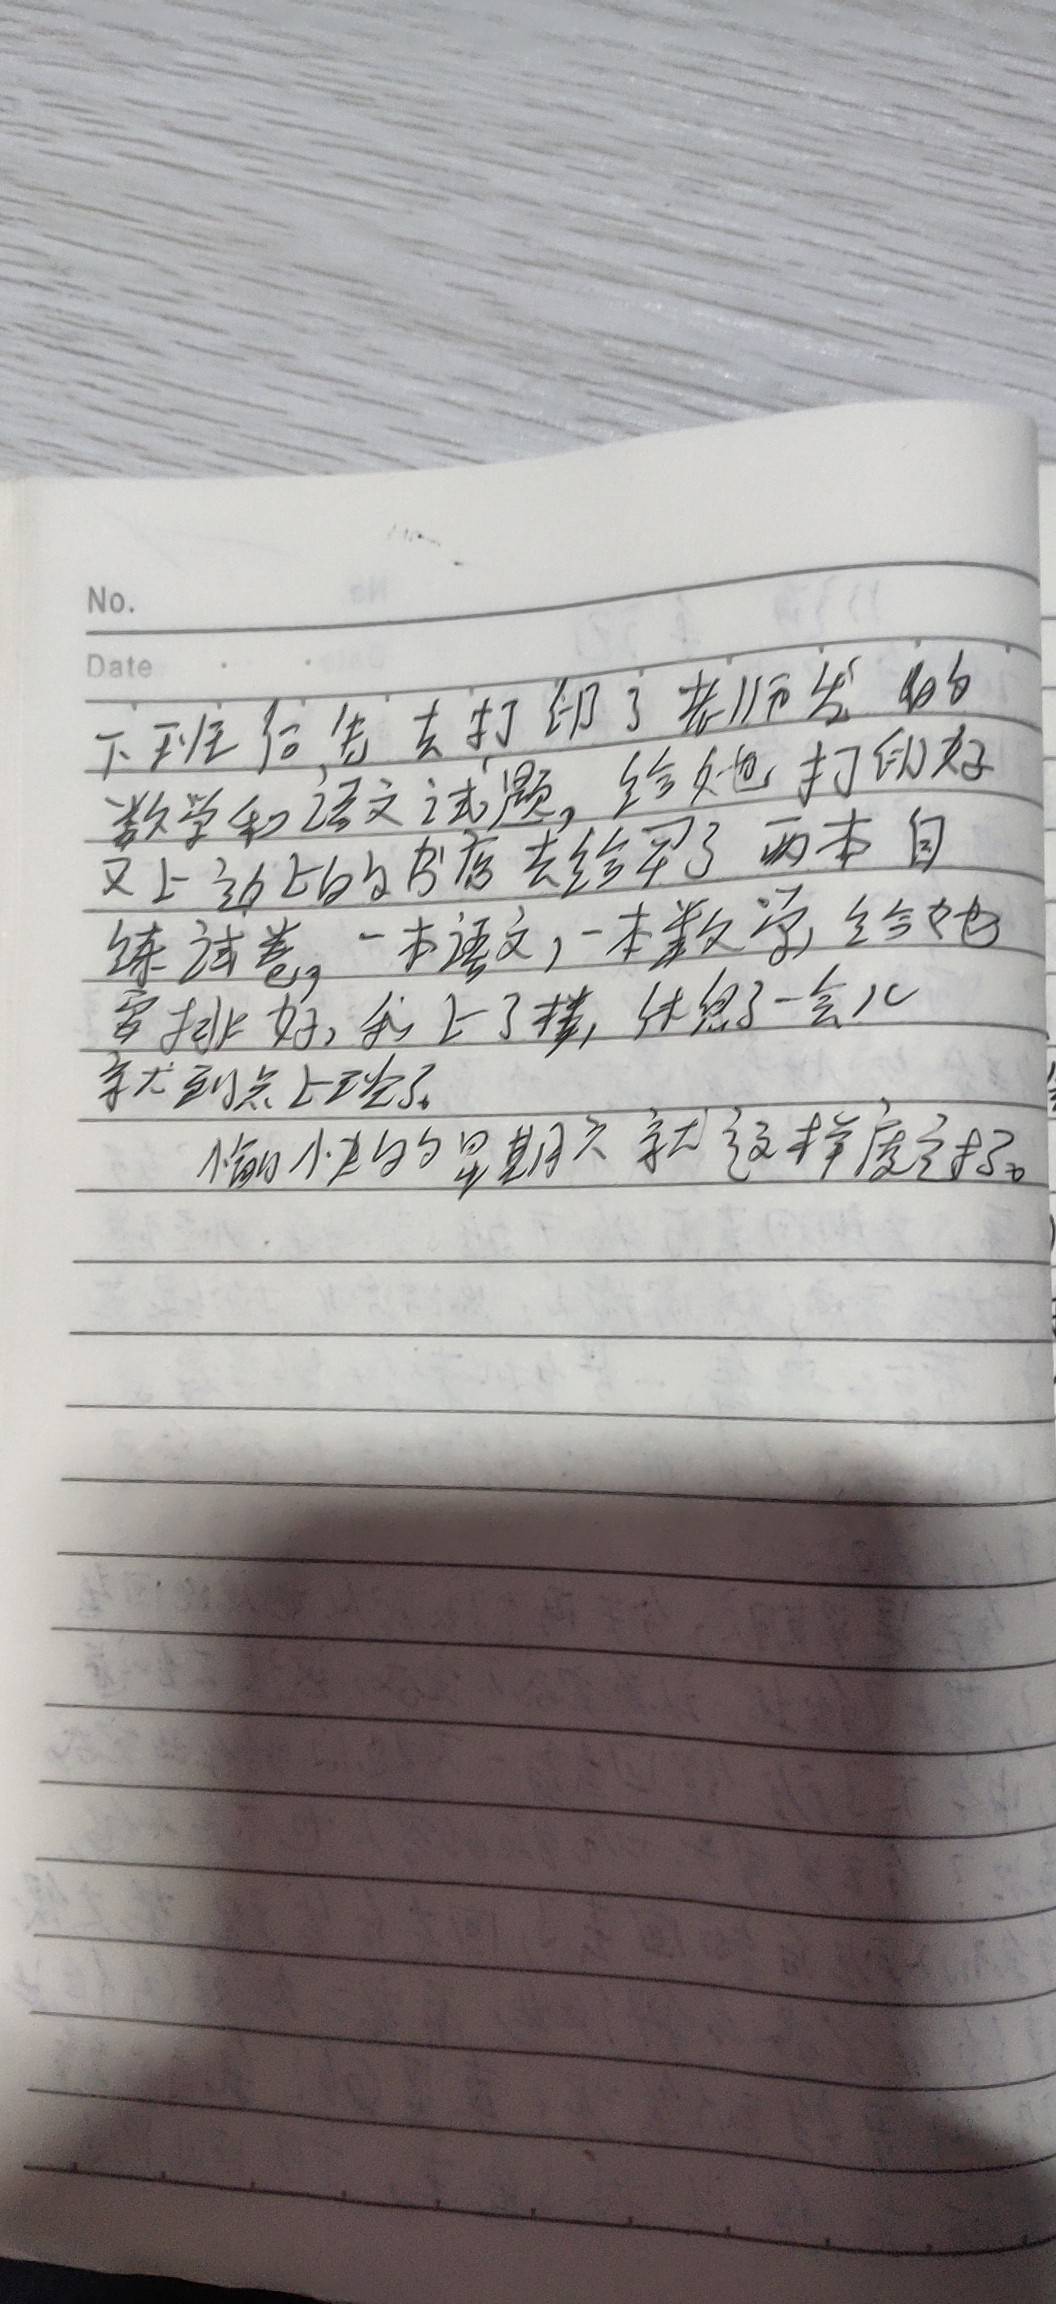 No.
Date
下班后先去打印了老师发的
数学和语文试题，给她打印好
又上边上的书店去给买了两本自
练试卷，一本语文，一本数学，给她
安排好，我上了楼，休息了一会儿
就到点上班了。
愉快的星期六就这样度过了。